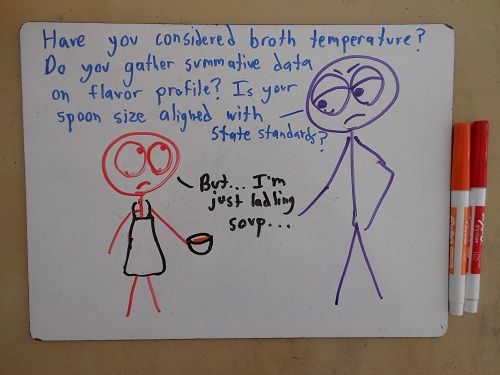 Have you considered broth temperature?
Do you gather summative data
on flavor profile? Is your
spoon size aligned with
State standards?
But... I'm
just ladling
soup...